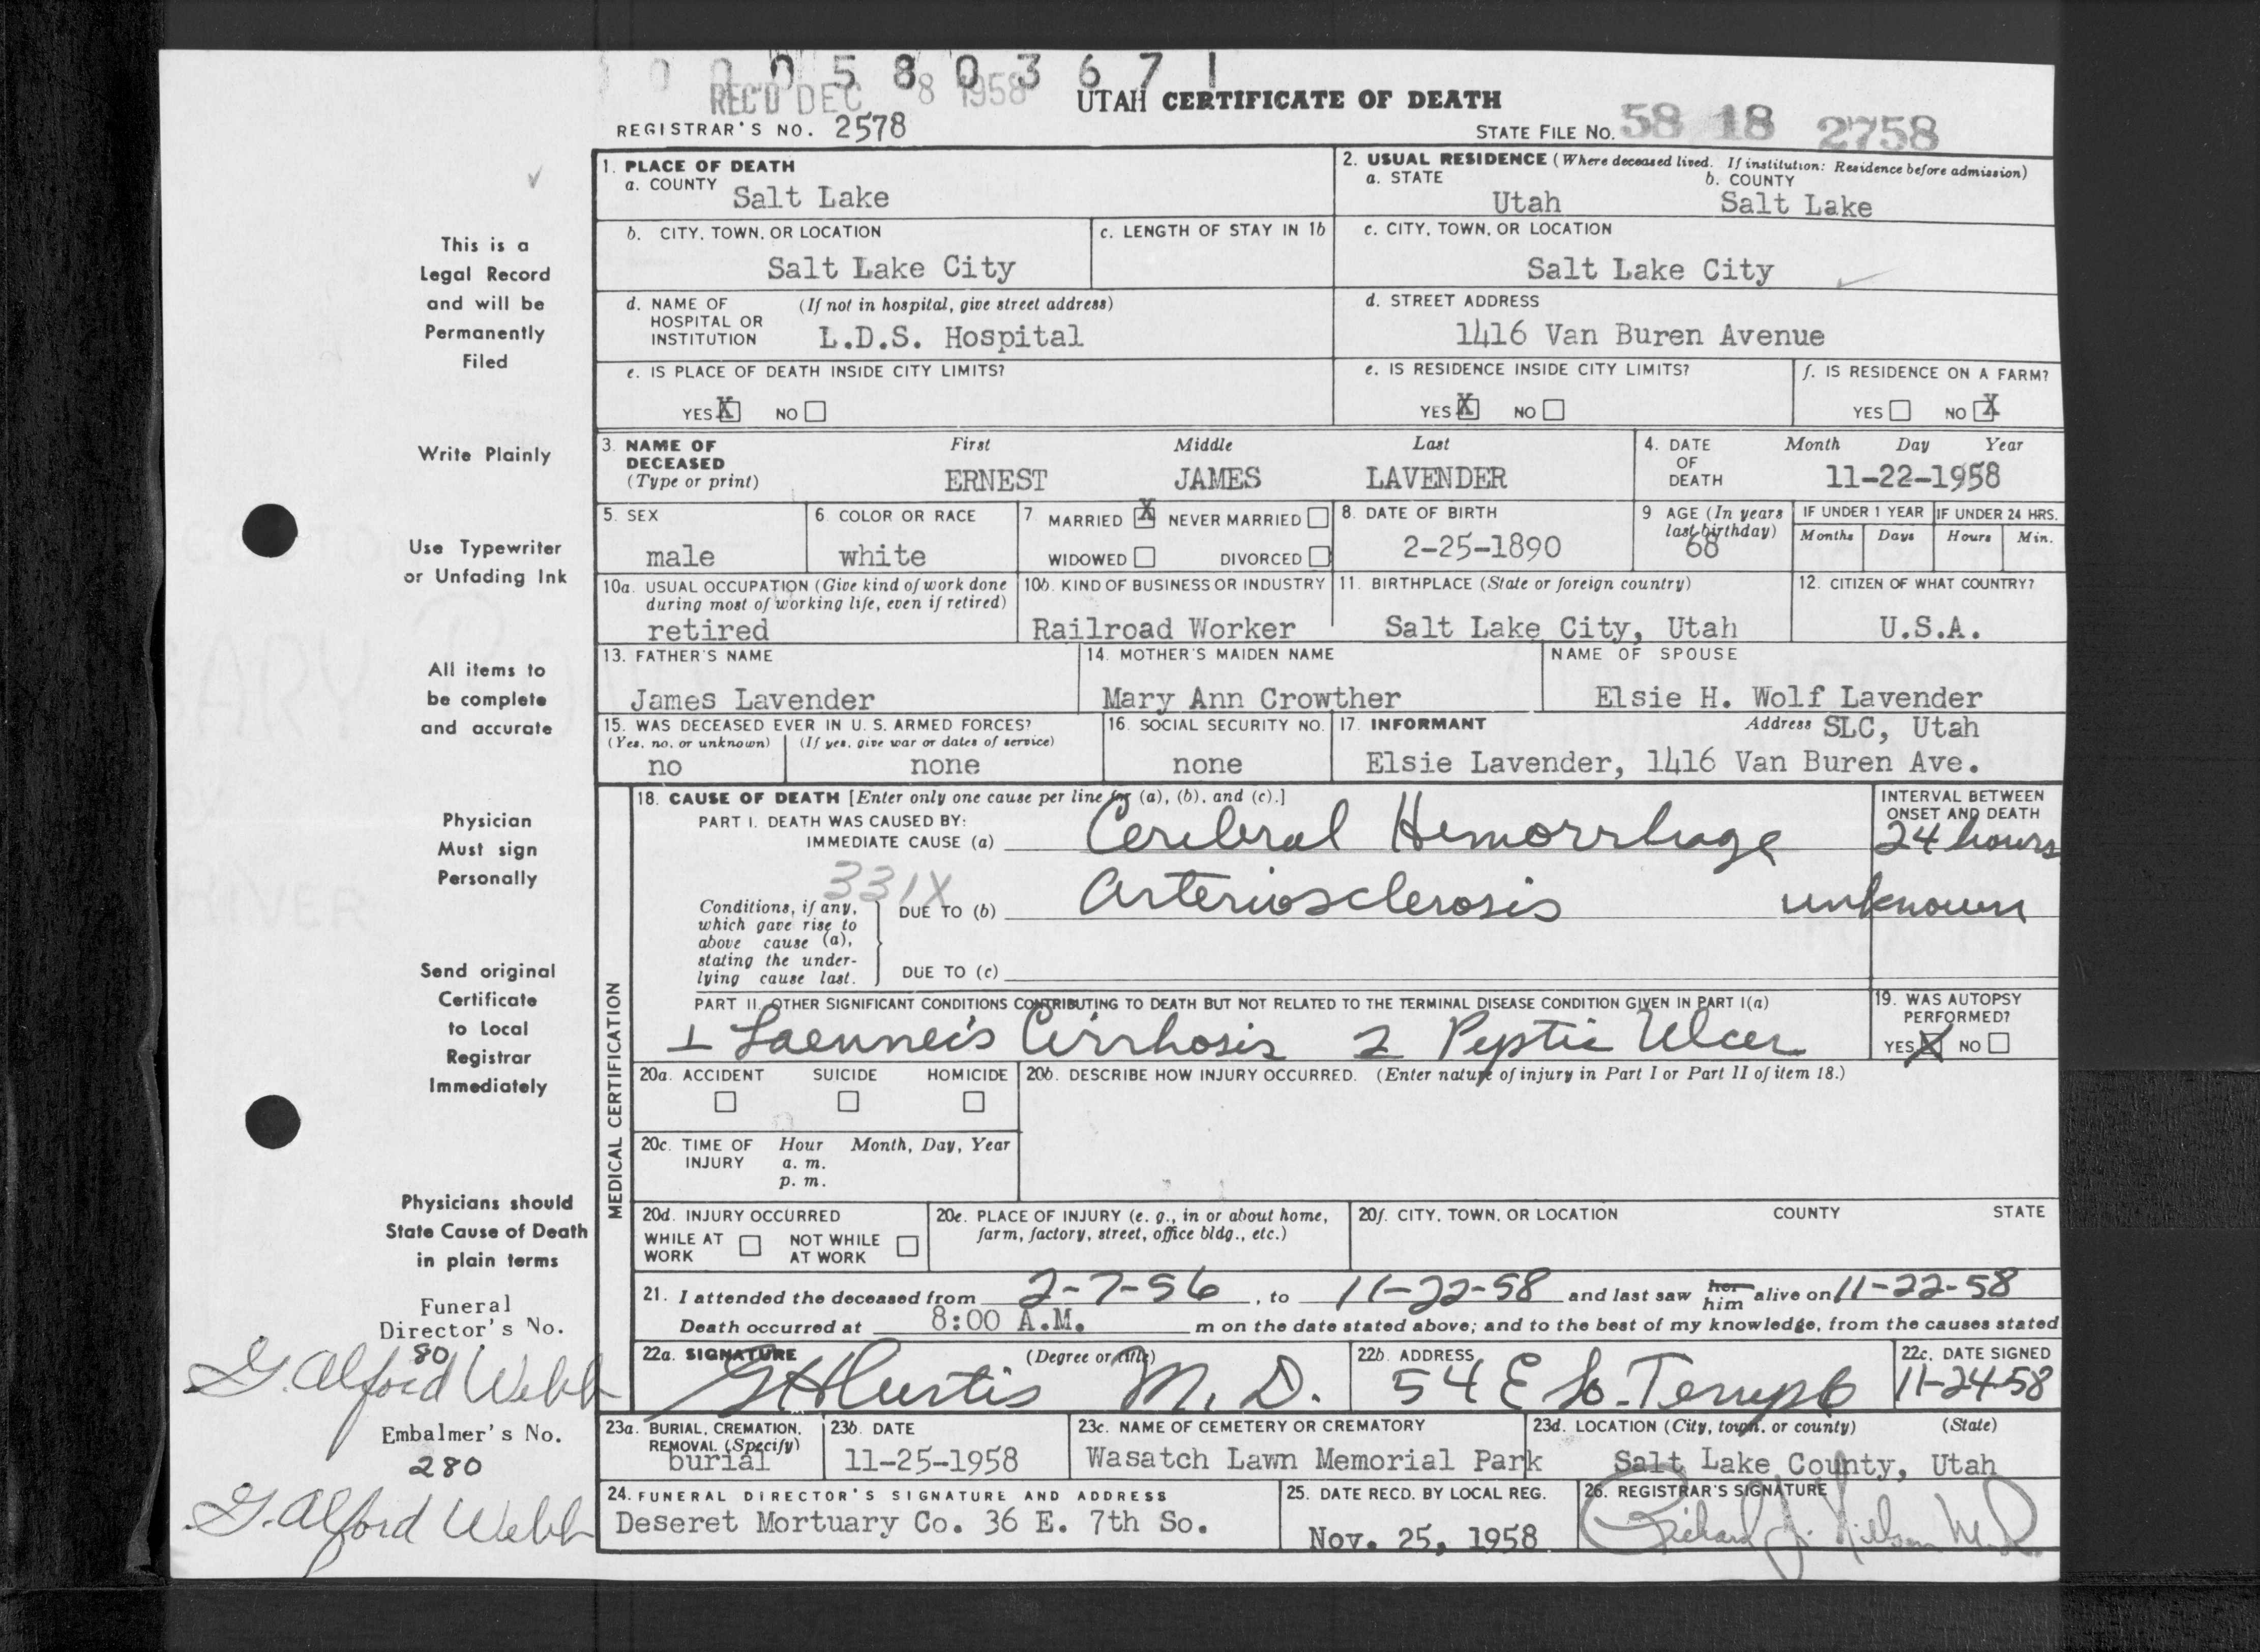 0 0 0 5 8 0 3 6 7 1
REC'D DEC 8 1958
UTAH CERTIFICATE OF DEATH
REGISTRAR'S NO. 2578
STATE FILE NO. 58 18 2758
This is a
Legal Record
and will be
Permanently
Filed
Write Plainly
Use Typewriter
or Unfading Ink
All items to
be complete
and accurate
Physician
Must sign
Personally
Send original
Certificate
to Local
Registrar
Immediately
Physicians should
State Cause of Death
in plain terms
Funeral
Director's No.
80
G. Alford Webb
Embalmer's No.
280
G. Alford Webb
1. PLACE OF DEATH
a. COUNTY Salt Lake
2. USUAL RESIDENCE (Where deceased lived. If institution: Residence before admission)
a. STATE Utah b. COUNTY Salt Lake
b. CITY, TOWN, OR LOCATION Salt Lake City
c. LENGTH OF STAY IN 1b
c. CITY, TOWN, OR LOCATION Salt Lake City
d. NAME OF HOSPITAL OR INSTITUTION (If not in hospital, give street address)
L.D.S. Hospital
d. STREET ADDRESS
1416 Van Buren Avenue
e. IS PLACE OF DEATH INSIDE CITY LIMITS?
YES X NO
e. IS RESIDENCE INSIDE CITY LIMITS?
YES X NO
f. IS RESIDENCE ON A FARM?
YES NO X
3. NAME OF DECEASED (Type or print)
First Middle Last
ERNEST JAMES LAVENDER
4. DATE OF DEATH Month Day Year
11-22-1958
5. SEX
male
6. COLOR OR RACE
white
7 MARRIED X NEVER MARRIED
WIDOWED DIVORCED
8. DATE OF BIRTH
2-25-1890
9 AGE (In years last birthday)
68
IF UNDER 1 YEAR IF UNDER 24 HRS.
Months Days Hours Min.
10a. USUAL OCCUPATION (Give kind of work done during most of working life, even if retired)
retired
10b. KIND OF BUSINESS OR INDUSTRY
Railroad Worker
11. BIRTHPLACE (State or foreign country)
Salt Lake City, Utah
12. CITIZEN OF WHAT COUNTRY?
U.S.A.
13. FATHER'S NAME
James Lavender
14. MOTHER'S MAIDEN NAME
Mary Ann Crowther
NAME OF SPOUSE
Elsie H. Wolf Lavender
15. WAS DECEASED EVER IN U. S. ARMED FORCES?
(Yes, no, or unknown) (If yes, give war or dates of service)
no none
16. SOCIAL SECURITY NO.
none
17. INFORMANT Address SLC, Utah
Elsie Lavender, 1416 Van Buren Ave.
MEDICAL CERTIFICATION
18. CAUSE OF DEATH [Enter only one cause per line for (a), (b), and (c).]
PART I. DEATH WAS CAUSED BY:
IMMEDIATE CAUSE (a) Cerebral Hemorrhage
INTERVAL BETWEEN ONSET AND DEATH
24 hours
331X
Conditions, if any, which gave rise to above cause (a), stating the underlying cause last.
DUE TO (b) Arteriosclerosis unknown
DUE TO (c)
PART II. OTHER SIGNIFICANT CONDITIONS CONTRIBUTING TO DEATH BUT NOT RELATED TO THE TERMINAL DISEASE CONDITION GIVEN IN PART I(a)
1 Laennec's Cirrhosis 2 Peptic Ulcer
19. WAS AUTOPSY PERFORMED?
YES X NO
20a. ACCIDENT SUICIDE HOMICIDE
20b. DESCRIBE HOW INJURY OCCURRED. (Enter nature of injury in Part I or Part II of item 18.)
20c. TIME OF INJURY Hour Month, Day, Year
a. m.
p. m.
20d. INJURY OCCURRED
WHILE AT WORK NOT WHILE AT WORK
20e. PLACE OF INJURY (e. g., in or about home, farm, factory, street, office bldg., etc.)
20f. CITY, TOWN, OR LOCATION COUNTY STATE
21. I attended the deceased from 2-7-56, to 11-22-58 and last saw her him alive on 11-22-58
Death occurred at 8:00 A.M. m on the date stated above; and to the best of my knowledge, from the causes stated
22a. SIGNATURE (Degree or title)
G H Curtis M. D.
22b. ADDRESS
54 E So. Temple
22c. DATE SIGNED
11-24-58
23a. BURIAL, CREMATION, REMOVAL (Specify)
burial
23b. DATE
11-25-1958
23c. NAME OF CEMETERY OR CREMATORY
Wasatch Lawn Memorial Park
23d. LOCATION (City, town, or county) (State)
Salt Lake County, Utah
24. FUNERAL DIRECTOR'S SIGNATURE AND ADDRESS
Deseret Mortuary Co. 36 E. 7th So.
25. DATE RECD. BY LOCAL REG.
Nov. 25, 1958
26. REGISTRAR'S SIGNATURE
Richard J. Nielsen M.D.